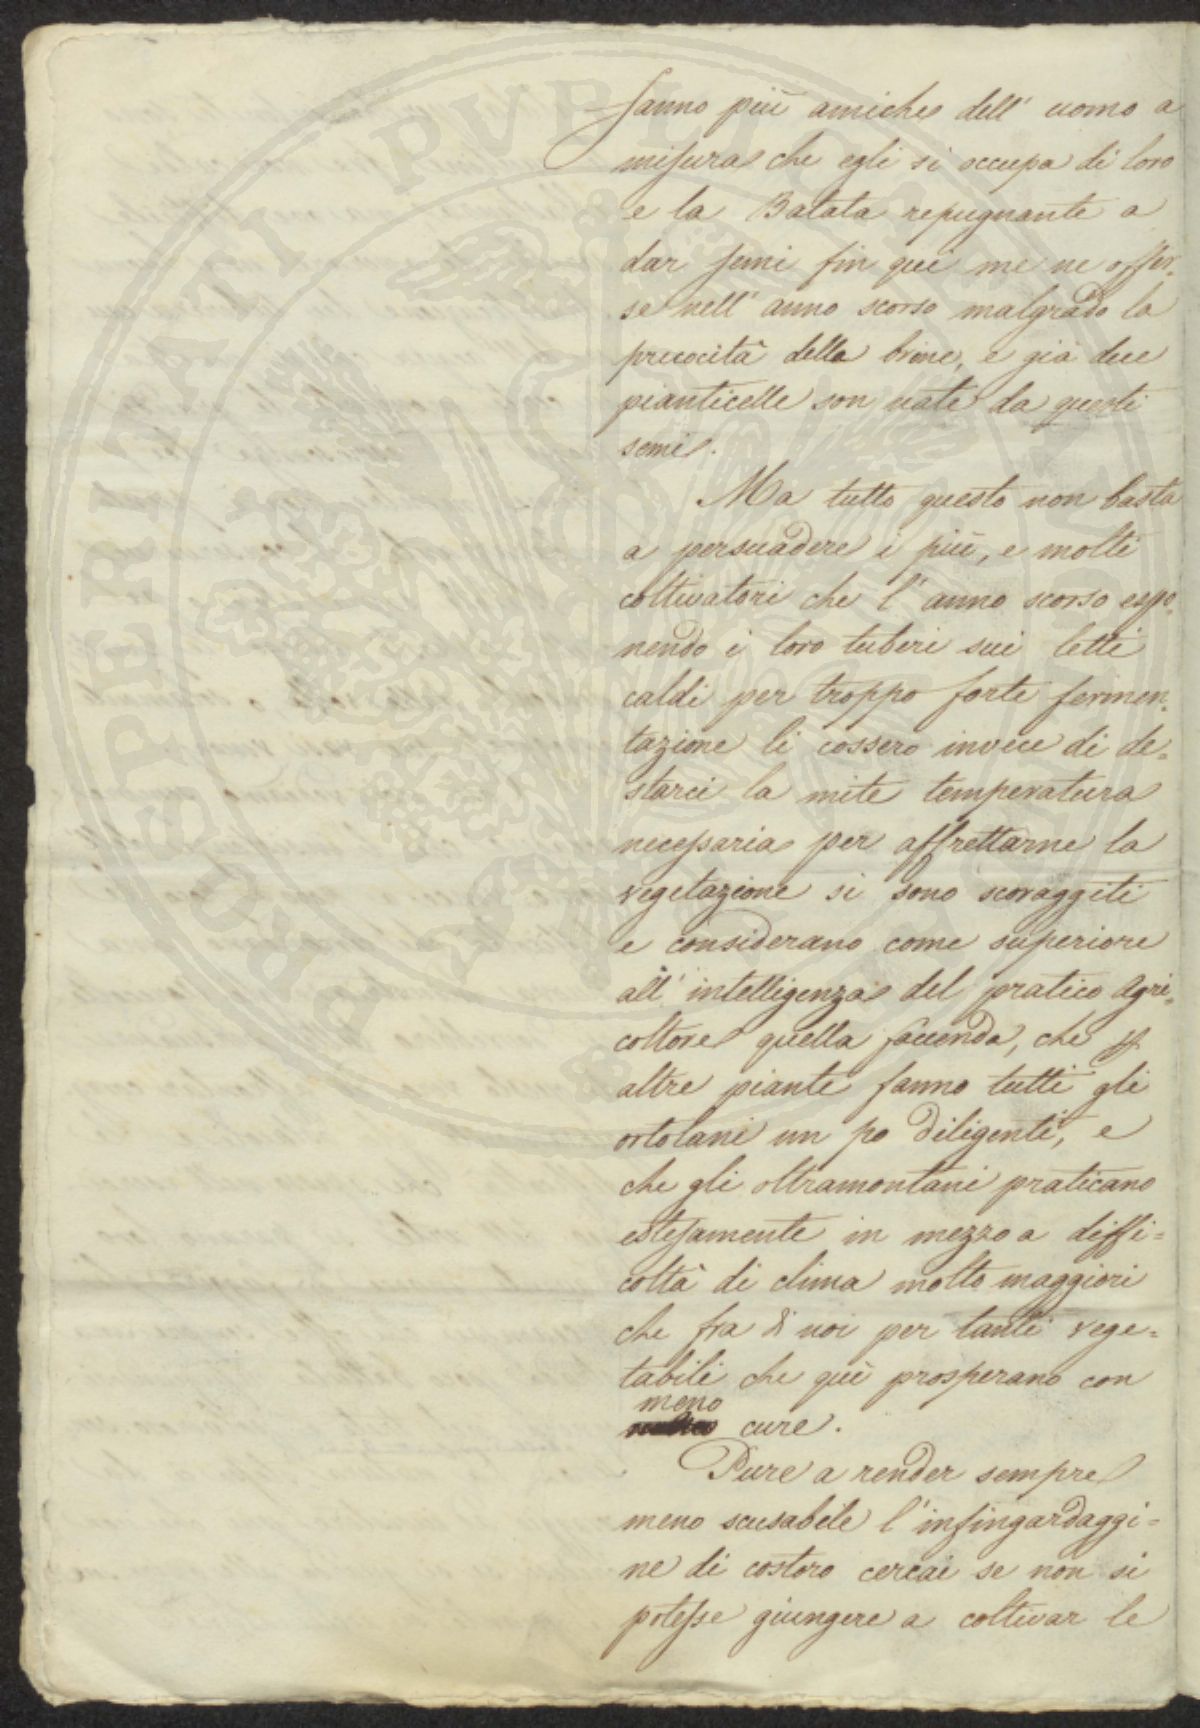 PROSPERITATI PUBLICAE
fanno più amiche dell' uomo a
misura che egli si occupa di loro
e la Batata repugnante a
dar semi fin qui me ne offer=
se nell' anno scorso malgrado la
precocità delle brine, e già due
pianticelle son nate da questi
semi.
Ma tutto questo non basta
a persuadere i più, e molti
coltivatori che l' anno scorso espo=
nendo i loro tuberi sui letti
caldi per troppo forte fermen=
tazione li cossero invece di de=
starci la mite temperatura
necessaria per affrettarne la
vegetazione si sono scoraggiti
e considerano come superiore
all' intelligenza del pratico Agri=
coltore quella faccenda, che p
altre piante fanno tutti gli
ortolani un po diligenti, e
che gli oltramontani praticano
estesamente in mezzo a diffi=
coltà di clima molto maggiori
che fra di noi per tanti vege=
tabili che quì prosperano con
meno
cure.
Pure a render sempre
meno scusabile l' infingardaggi=
ne di costoro cercai se non si
potesse giungere a coltivar le